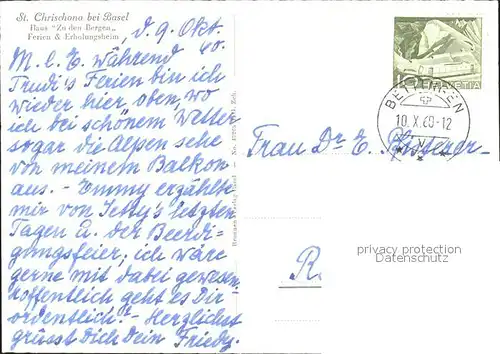 St. Chrischona bei Basel
Haus "Zu den Bergen"
Ferien & Erholungsheim
, d. 9. Okt.
60.
M. l. E. während
Trudi's Ferien bin ich
wieder hier, oben, wo
ich bei schönem Wetter
sogar die Alpen sehe
von meinem Balkon
aus. - Emmy erzählte
mir von Jetty's letzten
Tagen u. der Beerdi-
gungsfeier, ich wäre
gerne mit dabei gewesen
Hoffentlich geht es Dir
ordentlich! - Herzlichst
grüsst Dich Dein Friedy.
HELVETIA
BETTINGEN
10. X. 60-12
Frau Dr. E.
R
privacy protection
Datenschutz